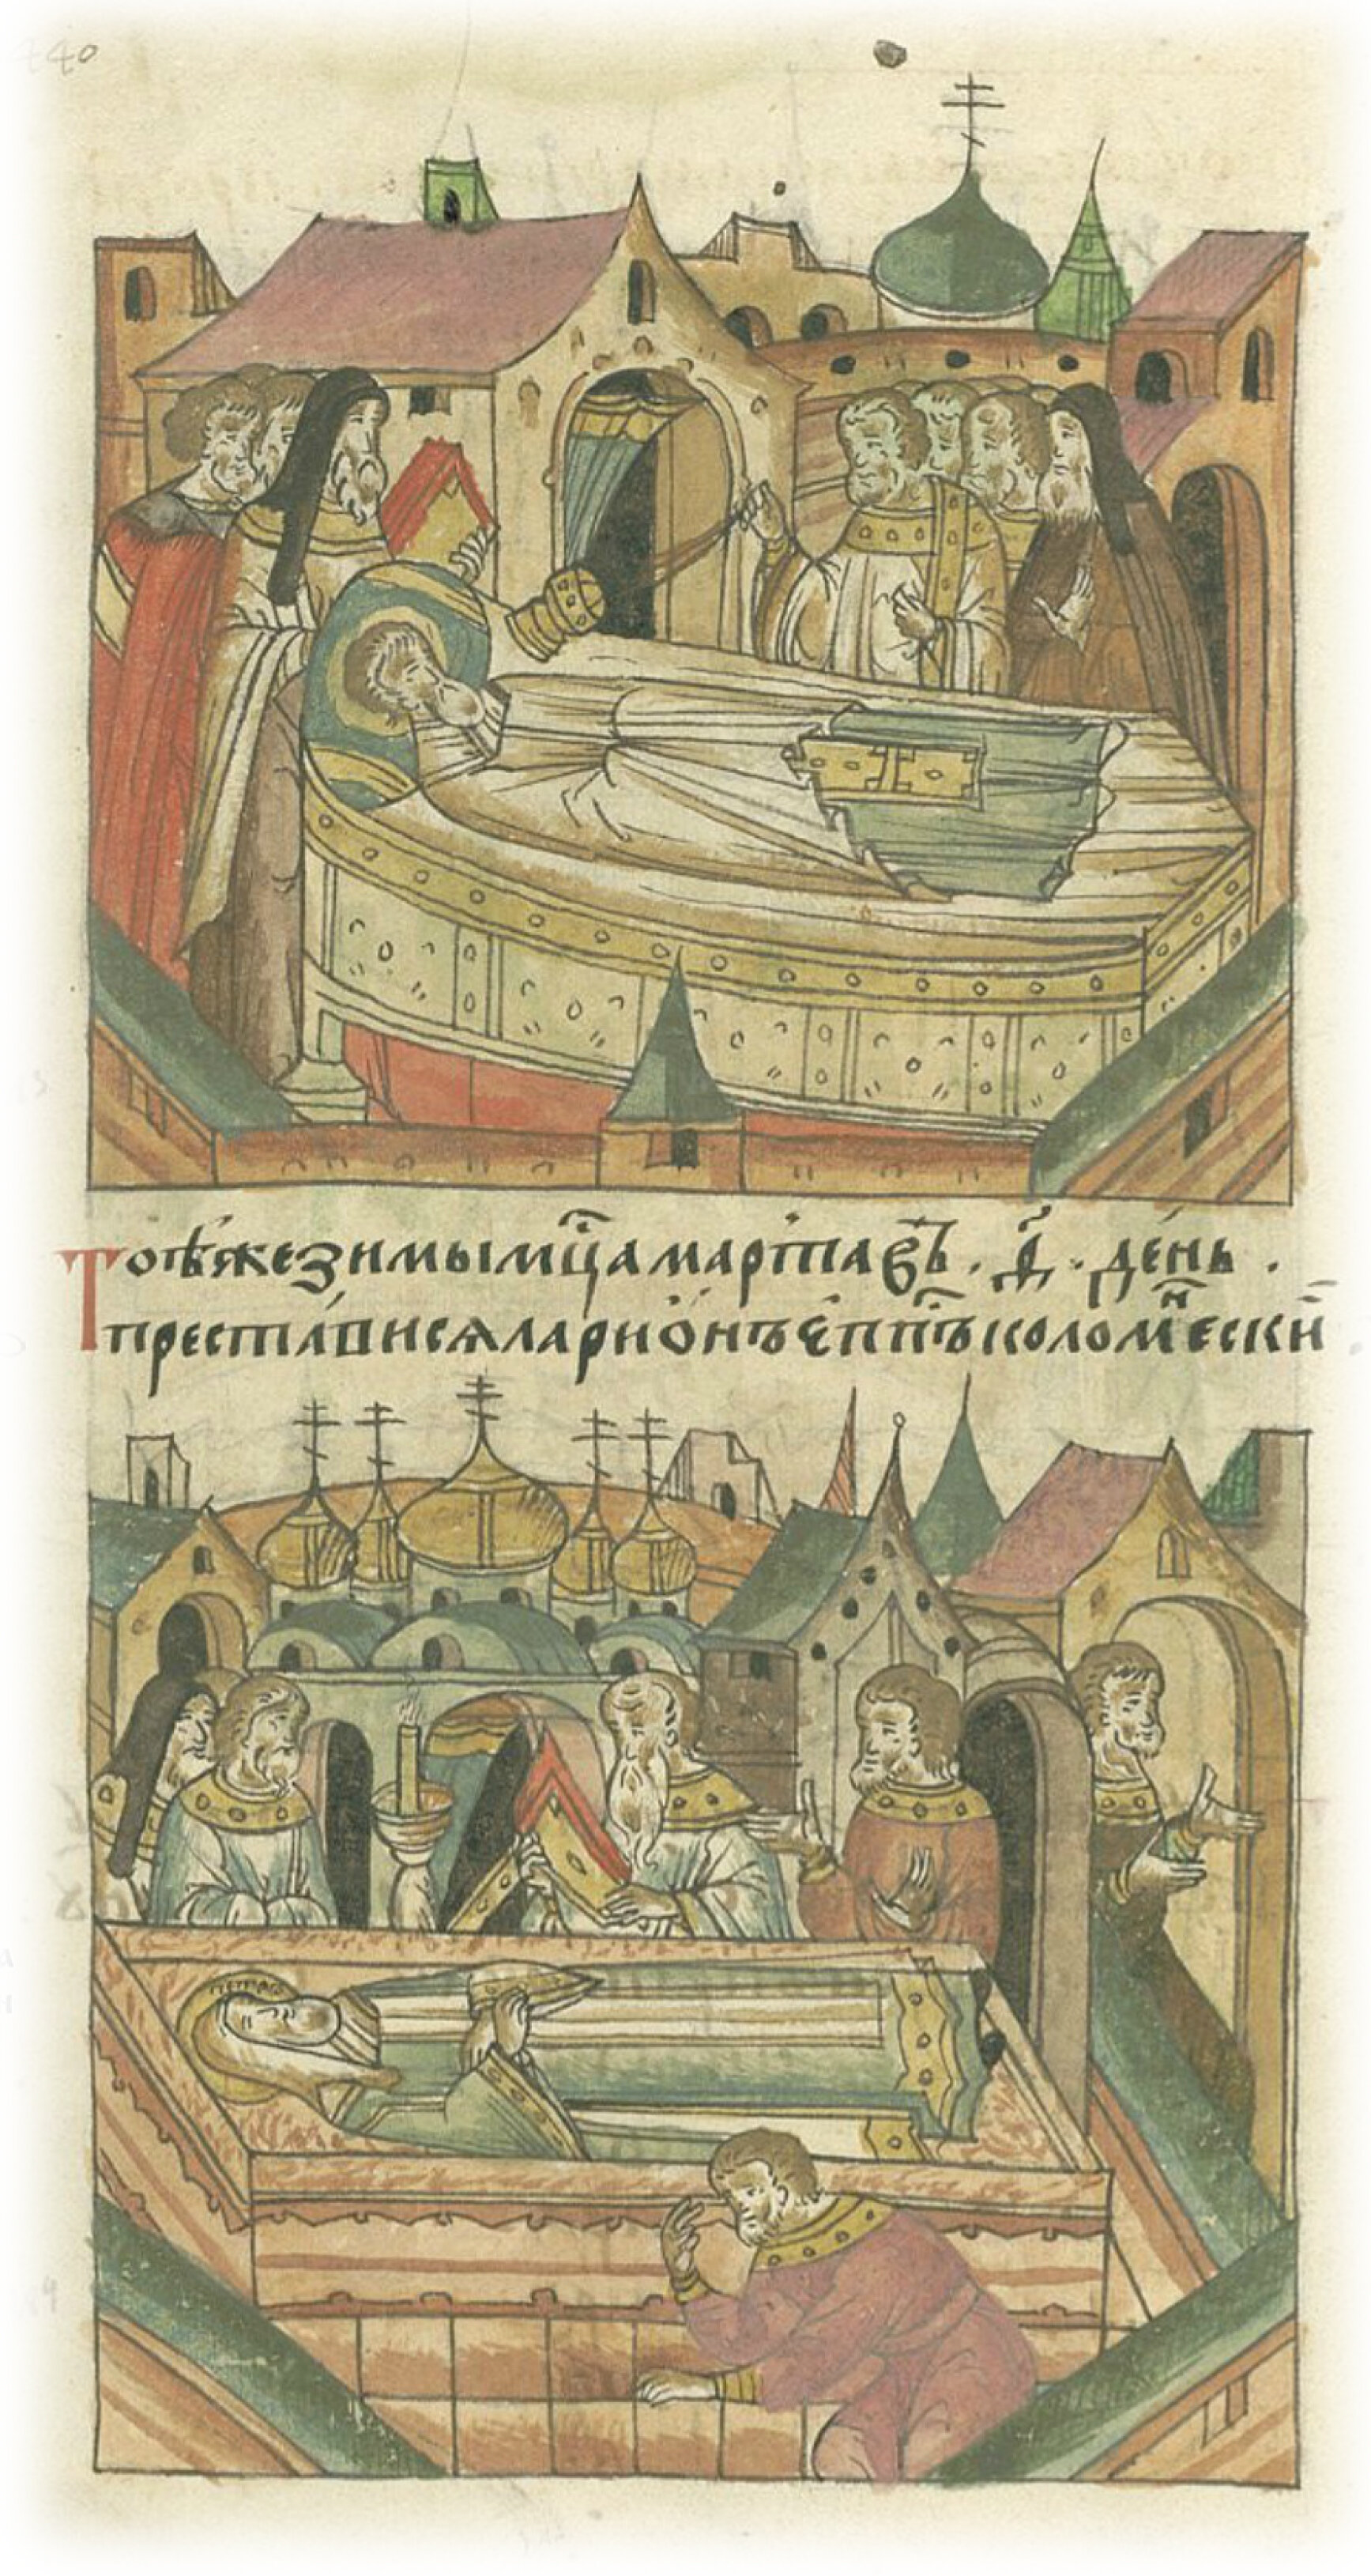 440
Тоѣ́же зимы мц҃а марта въ . д҃ . де́нь .
преста́висѧ ларио́нъ еп҃пъ коломⷩ҇ескй